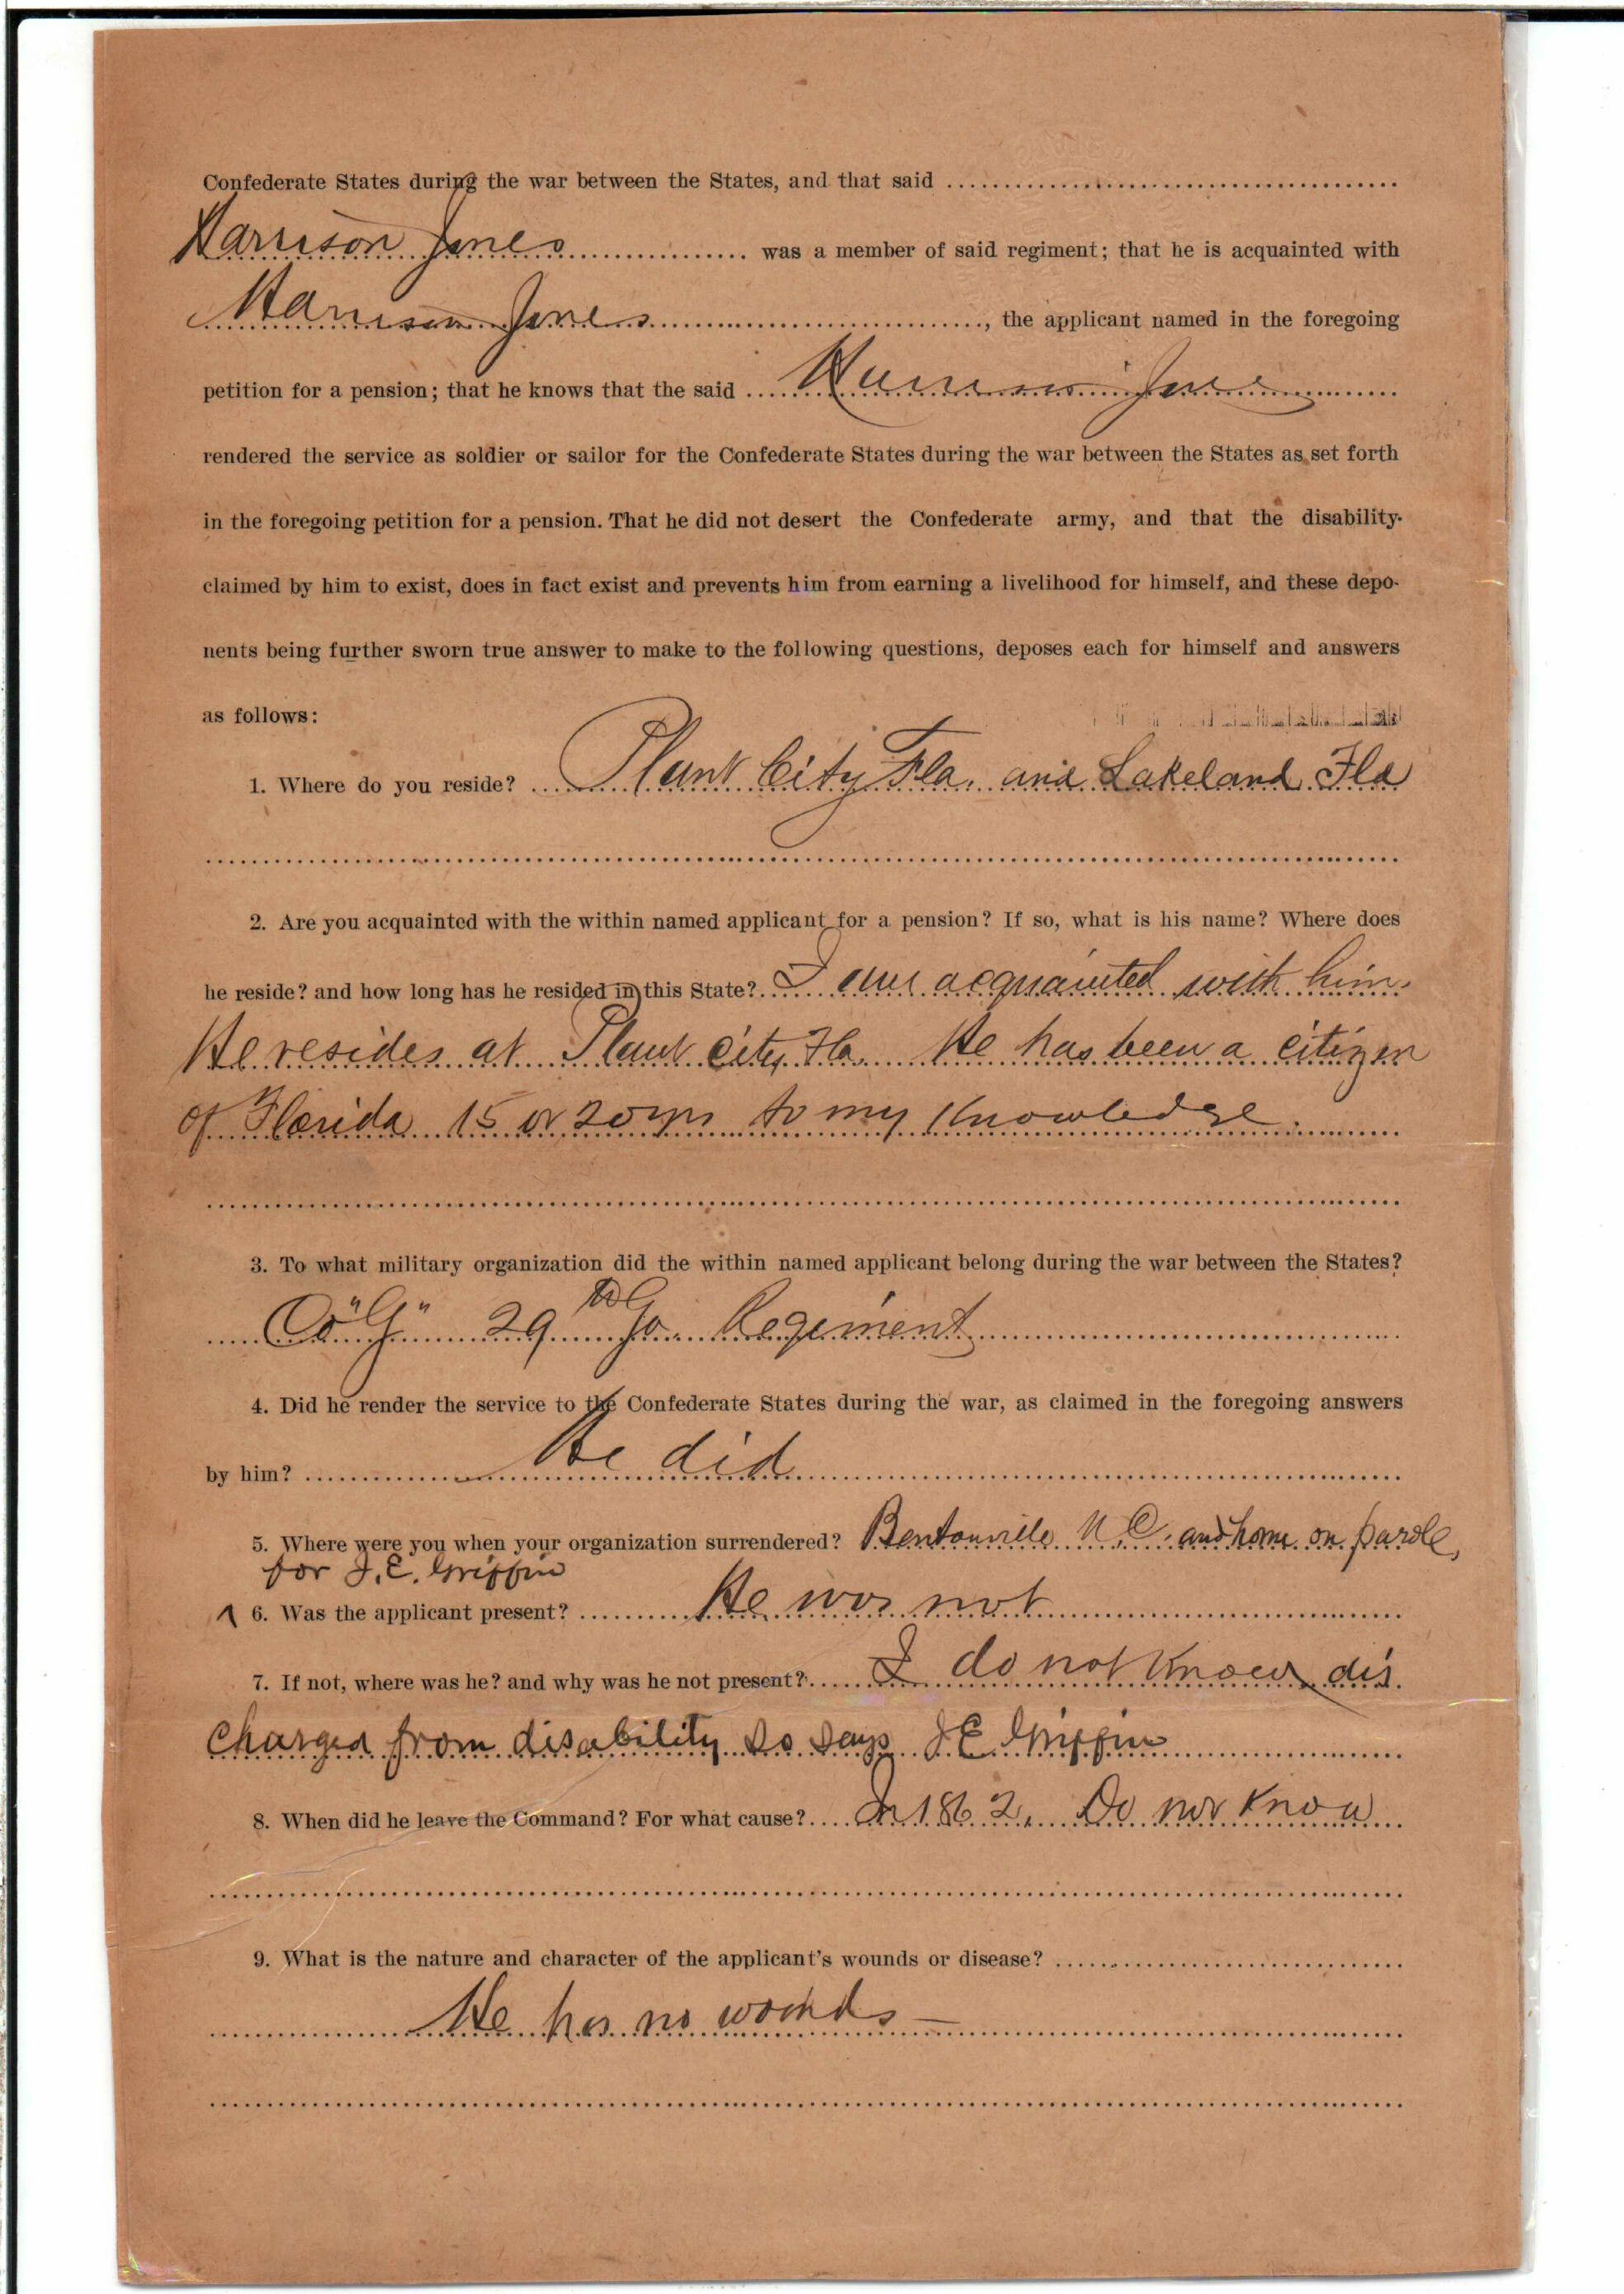 Confederate States during the war between the States, and that said
Harrison Jones was a member of said regiment; that he is acquainted with
Harrison Jones, the applicant named in the foregoing
petition for a pension; that he knows that the said Harrison Jones
rendered the service as soldier or sailor for the Confederate States during the war between the States as set forth
in the foregoing petition for a pension. That he did not desert the Confederate army, and that the disability
claimed by him to exist, does in fact exist and prevents him from earning a livelihood for himself, and these depo-
nents being further sworn true answer to make to the following questions, deposes each for himself and answers
as follows:
1. Where do you reside? Plant City Fla. and Lakeland Fla
2. Are you acquainted with the within named applicant for a pension? If so, what is his name? Where does
he reside? and how long has he resided in this State? I am acquainted with him.
He resides at Plant City, Fla. He has been a citizen
of Florida 15 or 20 yrs to my knowledge.
3. To what military organization did the within named applicant belong during the war between the States?
Co "G" 29 Ga. Regiment
4. Did he render the service to the Confederate States during the war, as claimed in the foregoing answers
by him? He did
5. Where were you when your organization surrendered? Bentonville N.C. and home on parole,
for J.E. Griffin
6. Was the applicant present? He was not
7. If not, where was he? and why was he not present? I do not know dis
charged from disability so says J E Griffin
8. When did he leave the Command? For what cause? In 1862. Do not know
9. What is the nature and character of the applicant's wounds or disease?
He has no wounds